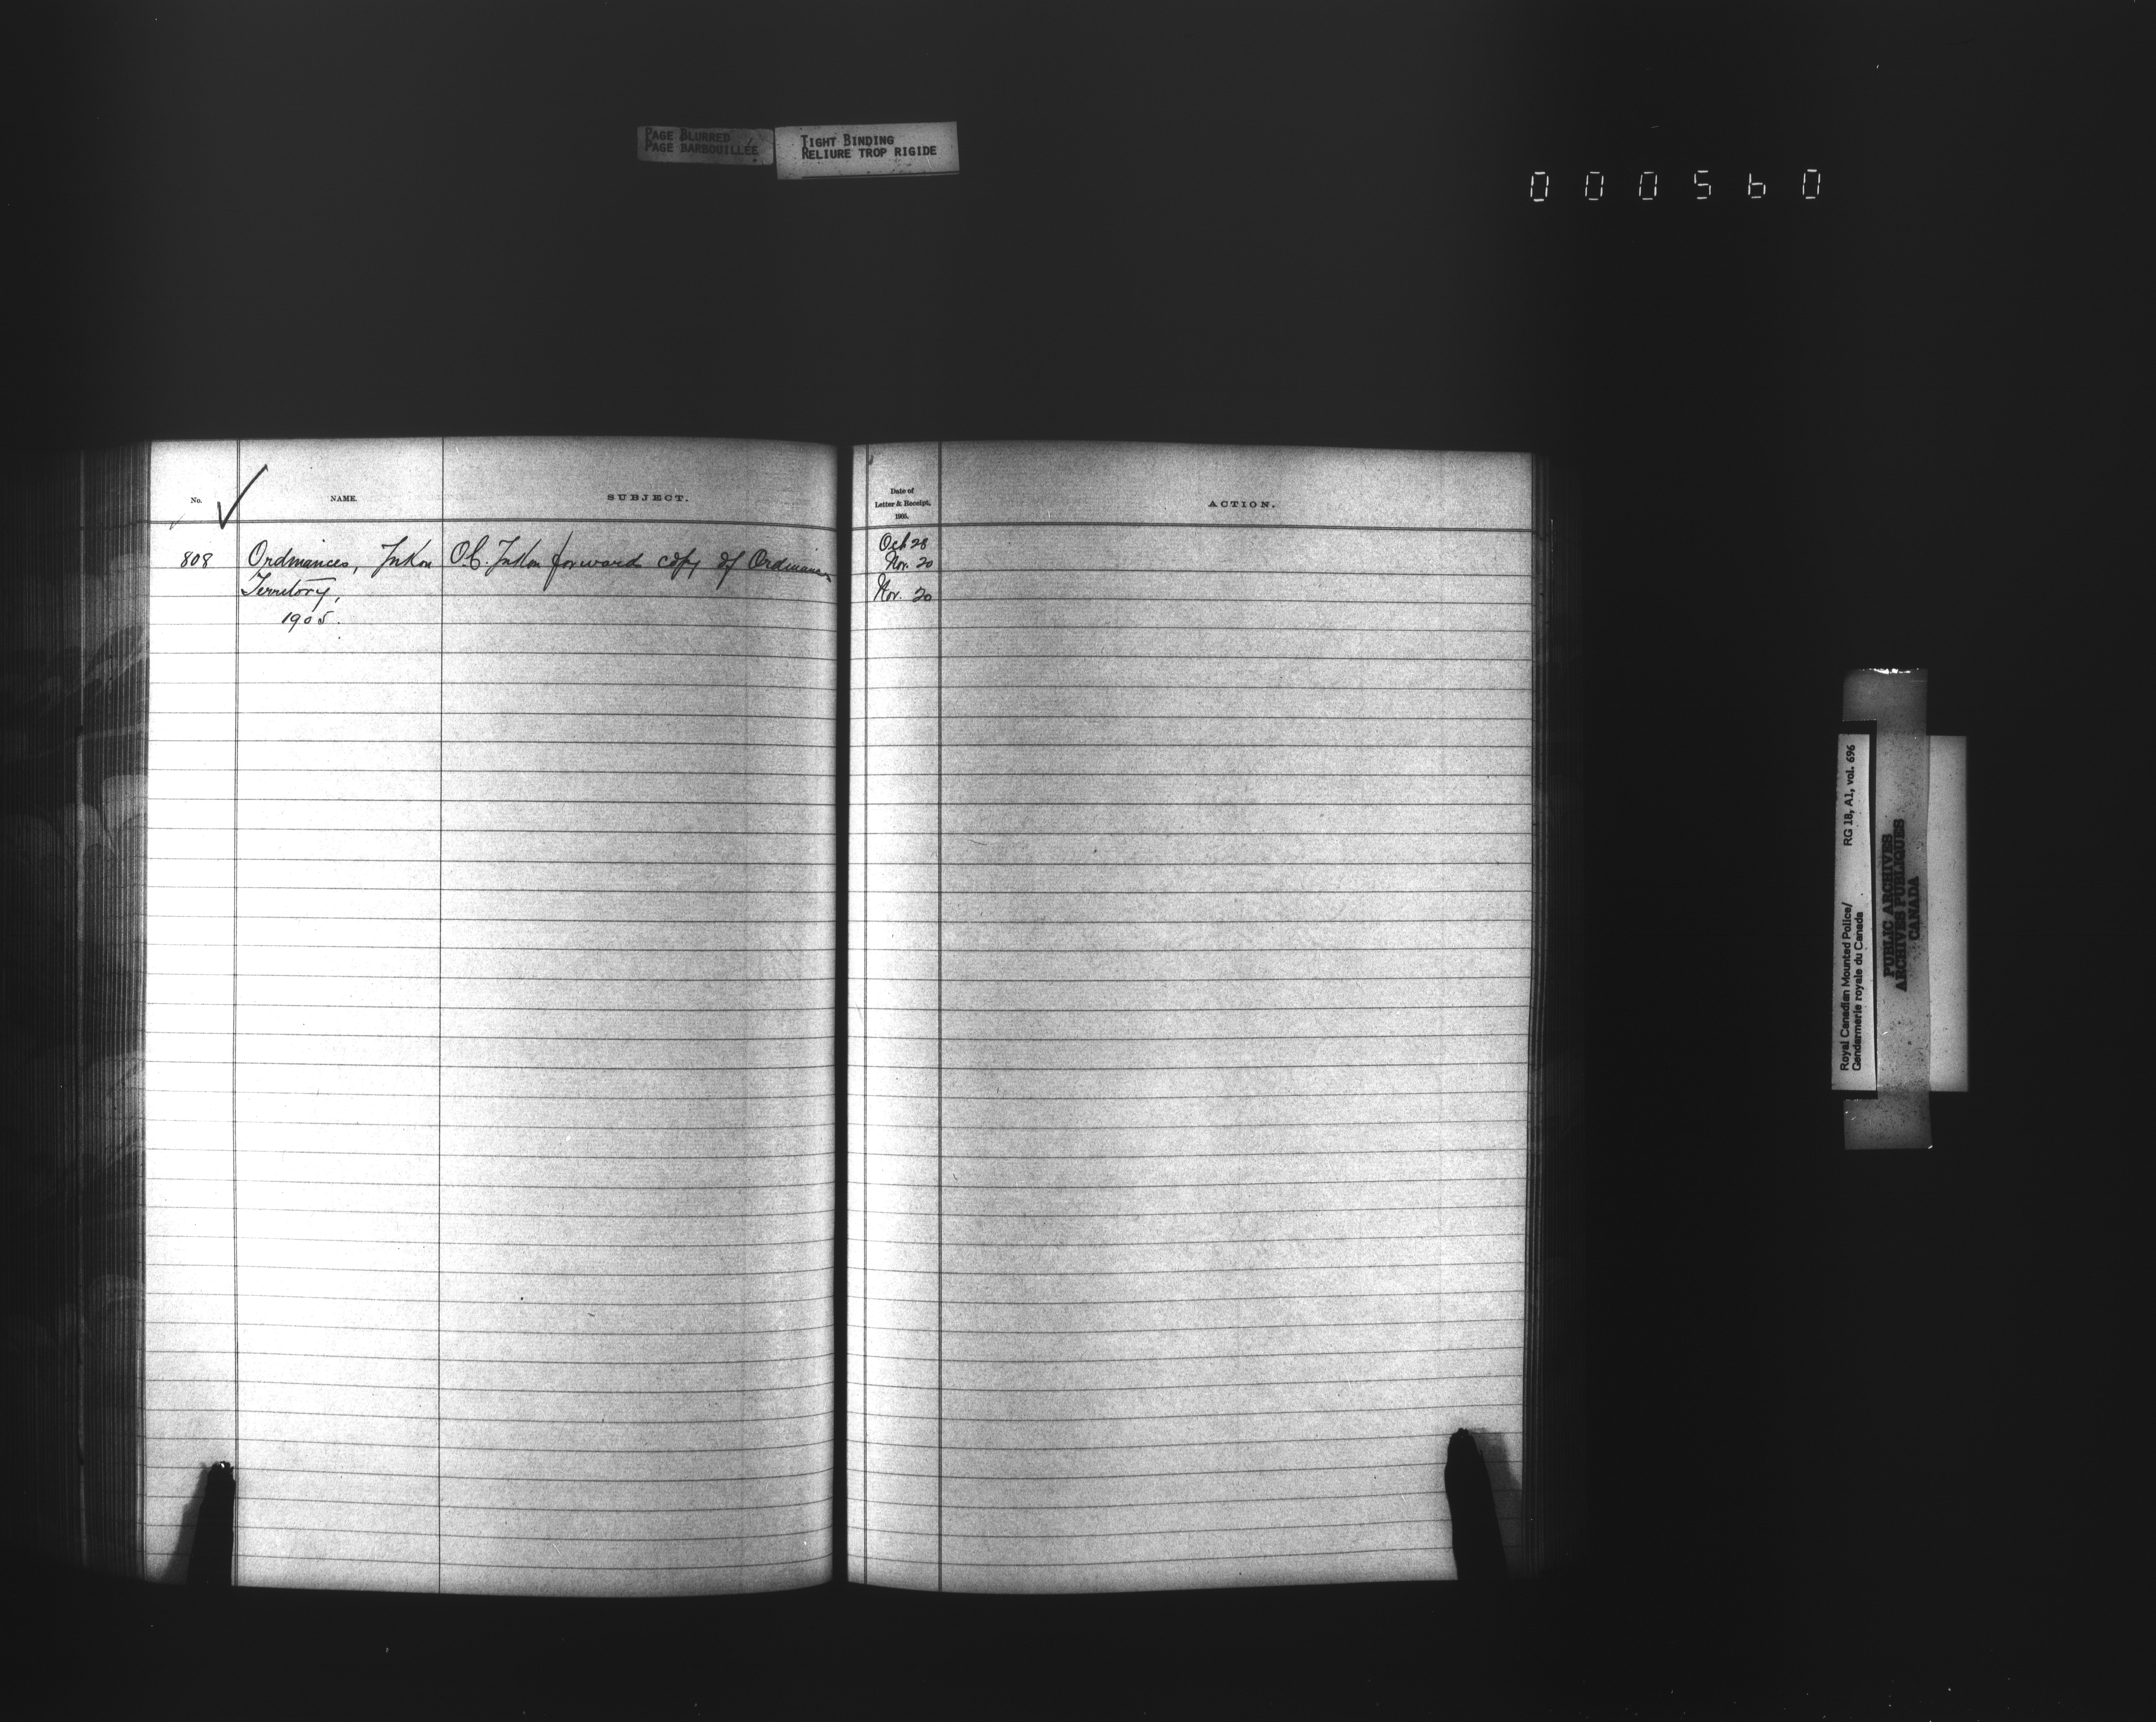 PAGE BLURRED
PAGE BARBOUILLÉE
TIGHT BINDING
RELIURE TROP RIGIDE
000560
No.
NAME.
SUBJECT.
Date of
Letter & Receipt,
1905.
ACTION.
808 Ordinances, Yukon O.C. Yukon forwards copy of Ordinances Oct 28
Nov. 20
Territory, Nov. 20
1905.
Royal Canadian Mounted Police/ RG 18, A1, vol. 696
Gendarmerie royale du Canada
PUBLIC ARCHIVES
ARCHIVES PUBLIQUES
CANADA